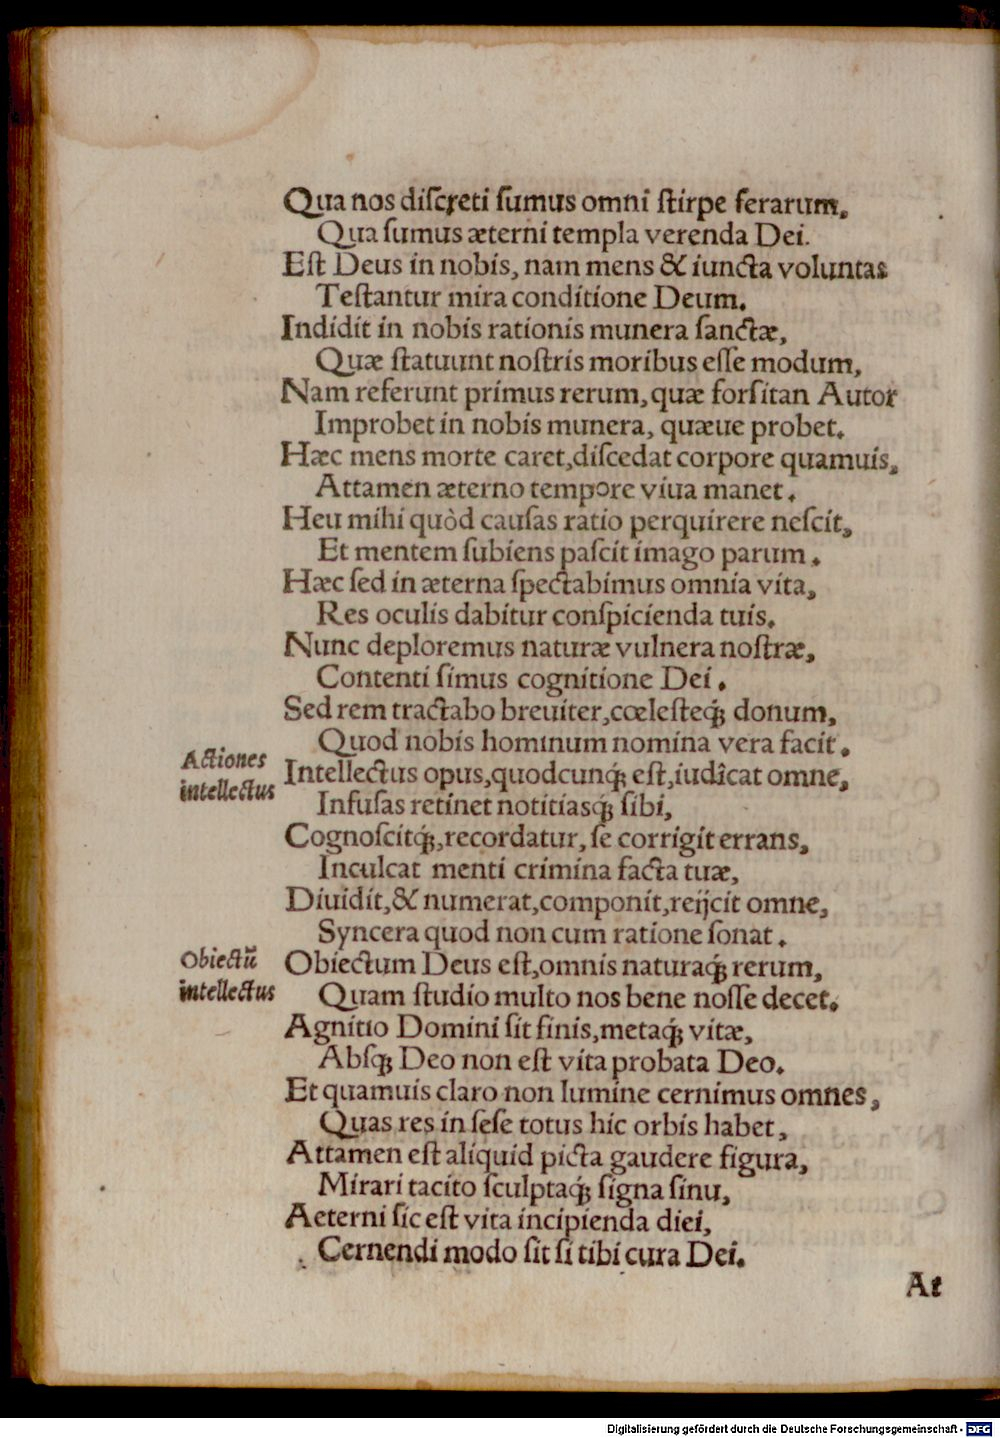 Qua nos diſcreti ſumus omni ſtirpe ferarum,
Qua ſumus æterni templa verenda Dei.
Eſt Deus in nobis, nam mens & iuncta voluntas
Teſtantur mira conditione Deum.
Indidit in nobis rationis munera ſanctæ,
Quæ ſtatuunt noſtris moribus eſſe modum,
Nam referunt primus rerum, quæ forſitan Autor
Improbet in nobis munera, quæue probet.
Hæc mens morte caret, diſcedat corpore quamuis,
Attamen æterno tempore viua manet.
Heu mihi quòd cauſas ratio perquirere neſcit,
Et mentem ſubiens paſcit imago parum.
Hæc ſed in æterna ſpectabimus omnia vita,
Res oculis dabitur conſpicienda tuis.
Nunc deploremus naturæ vulnera noſtræ,
Contenti ſimus cognitione Dei.
Sed rem tractabo breuiter, cœleſteq́ꝫ donum,
Quod nobis hominum nomina vera facit.
Actiones
intellectus
Intellectus opus, quodcunq́ꝫ eſt, iudicat omne,
Infuſas retinet notitiasq́ꝫ ſibi,
Cognoſcitq́ꝫ, recordatur, ſe corrigit errans,
Inculcat menti crimina facta tuæ,
Diuidit, & numerat, componit, reijcit omne,
Syncera quod non cum ratione ſonat.
Obiectũ
intellectus
Obiectum Deus eſt, omnis naturaq́ꝫ rerum,
Quam ſtudio multo nos bene noſſe decet.
Agnitio Domini ſit finis, metaq́ꝫ vitæ,
Abſq́ꝫ Deo non eſt vita probata Deo.
Et quamuis claro non lumine cernimus omnes,
Quas res in ſeſe totus hic orbis habet,
Attamen eſt aliquid picta gaudere figura,
Mirari tacito ſculptaq́ꝫ ſigna ſinu,
Aeterni ſic eſt vita incipienda diei,
Cernendi modo ſit ſi tibi cura Dei.
At
Digitalisierung gefördert durch die Deutsche Forschungsgemeinschaft - DFG